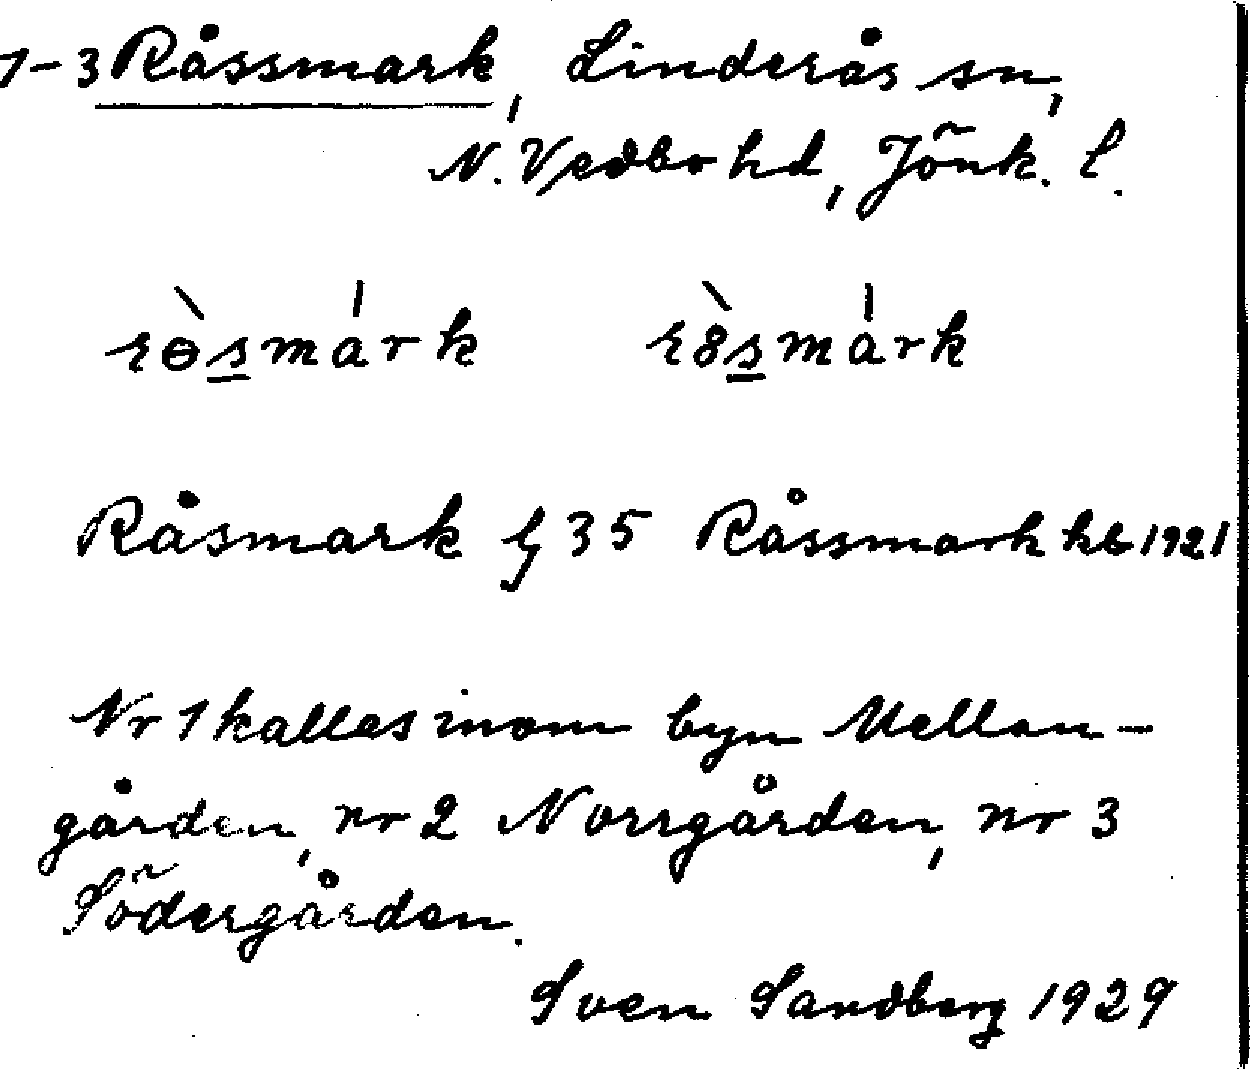 1-3 Råssmark, Linderås sn,
N. Vedbo hd, Jönk. l.
rɵ̀smárk rȣ̀smárk
Råsmark J 35 Råssmark kb 1921
Nr 1 kallas inom byn Mellan-
gården, nr 2 Norrgården, nr 3
Södergården.
Sven Sandberg 1929